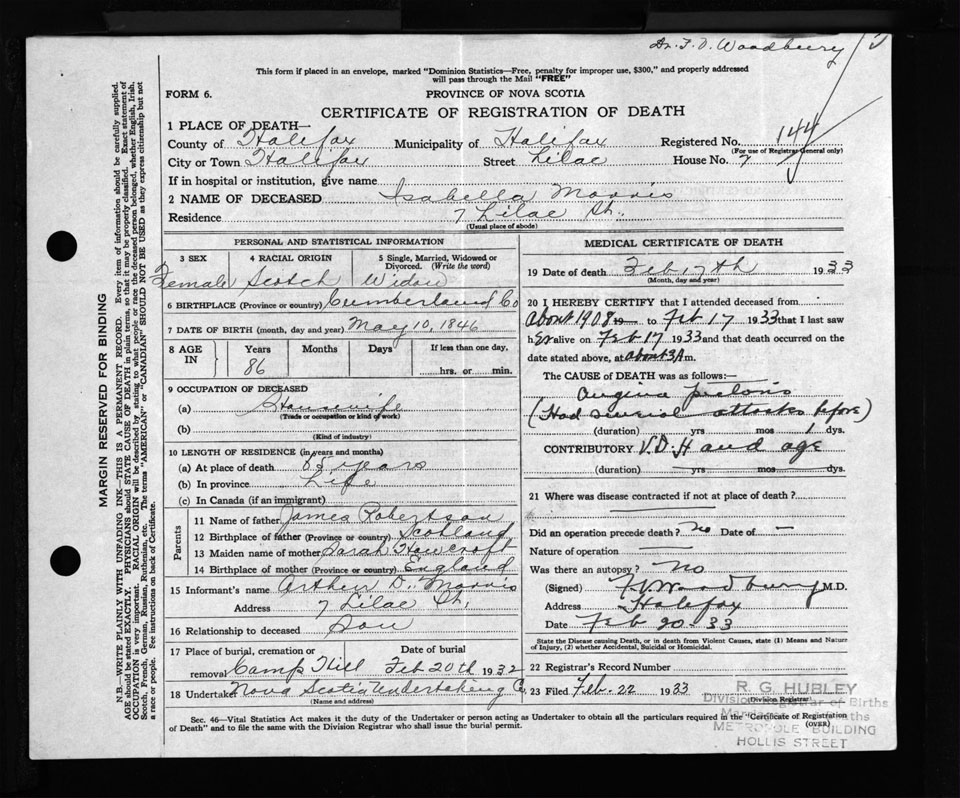 Dr. F. D. Woodbury
This form if placed in an envelope, marked "Dominion Statistics—Free, penalty for improper use, $300," and properly addressed
will pass through the Mail "FREE"
FORM 6.
PROVINCE OF NOVA SCOTIA
CERTIFICATE OF REGISTRATION OF DEATH
1 PLACE OF DEATH—
County of Halifax Municipality of Halifax Registered No. 144
(For use of Registrar General only)
City or Town Halifax Street Lilac House No. 7
If in hospital or institution, give name
2 NAME OF DECEASED Isabella Morris
Residence 7 Lilac St.
(Usual place of abode)
PERSONAL AND STATISTICAL INFORMATION
3 SEX 4 RACIAL ORIGIN 5 Single, Married, Widowed or Divorced. (Write the word)
Female Scotch Widow
6 BIRTHPLACE (Province or country) Cumberland Co
7 DATE OF BIRTH (month, day and year) May 10, 1846
8 AGE IN Years Months Days If less than one day,
86 hrs. or min.
9 OCCUPATION OF DECEASED
(a) Housewife
(Trade or occupation or kind of work)
(b)
(Kind of industry)
10 LENGTH OF RESIDENCE (in years and months)
(a) At place of death years
(b) In province Life
(c) In Canada (if an immigrant)
Parents
11 Name of father James Robertson
12 Birthplace of father (Province or country) Scotland
13 Maiden name of mother Sarah Howcroft
14 Birthplace of mother (Province or country) England
15 Informant's name Arthur D. Morris
Address 7 Lilac St.
16 Relationship to deceased Son
17 Place of burial, cremation or removal Date of burial
Camp Hill Feb 20th 1932
18 Undertaker Nova Scotia Undertaking Co.
(Name and address)
MEDICAL CERTIFICATE OF DEATH
19 Date of death Feb 17th 1933
(Month, day and year)
20 I HEREBY CERTIFY that I attended deceased from
about 1908 19 to Feb 17 1933 that I last saw
her alive on Feb 17 1933 and that death occurred on the
date stated above, at about 3 A m.
The CAUSE of DEATH was as follows:—
Angina pectoris
(Had several attacks before)
(duration) yrs mos 1 dys.
CONTRIBUTORY V.D.H and age
(duration) yrs mos dys.
21 Where was disease contracted if not at place of death?
Did an operation precede death? No Date of —
Nature of operation
Was there an autopsy? No
(Signed) Woodbury M.D.
Address Halifax
Date Feb 20-33
State the Disease causing Death, or in death from Violent Causes, state (1) Means and Nature
of Injury, (2) whether Accidental, Suicidal or Homicidal.
22 Registrar's Record Number
23 Filed Feb. 22 1933
(Division Registrar)
R G HUBLEY
Division Registrar of Births
METROPOLE BUILDING
HOLLIS STREET
Sec. 46—Vital Statistics Act makes it the duty of the Undertaker or person acting as Undertaker to obtain all the particulars required in the "Certificate of Registration
of Death" and to file the same with the Division Registrar who shall issue the burial permit.
(OVER)
MARGIN RESERVED FOR BINDING
N.B.—WRITE PLAINLY WITH UNFADING INK—THIS IS A PERMANENT RECORD. Every item of information should be carefully supplied.
AGE should be stated EXACTLY. PHYSICIANS should STATE CAUSE OF DEATH in plain terms, so that it may be properly classified. Exact statement of
OCCUPATION is very important. RACIAL ORIGIN will be described by stating to what people or race the deceased person belonged, whether English, Irish,
Scotch, French, German, Russian, Ruthenian, etc. The terms "AMERICAN" or "CANADIAN" SHOULD NOT BE USED as they express citizenship but not
a race or people. See instructions on back of Certificate.